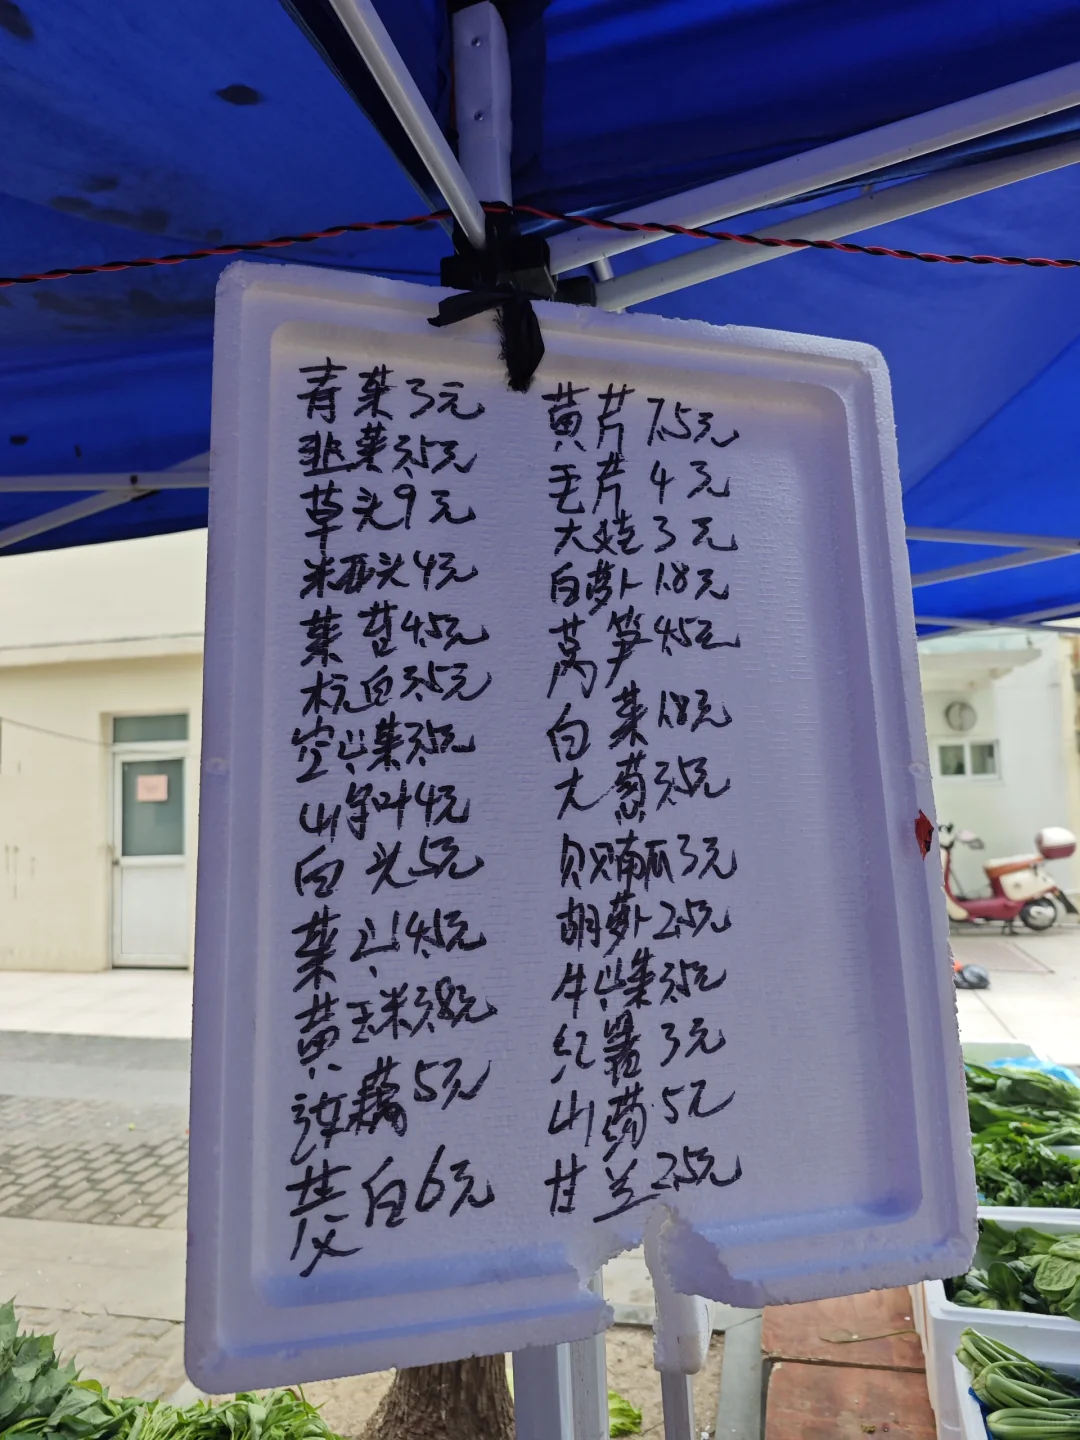 青菜3元
韭菜3.5元
草头9元
米西头4元
菜苔4.5元
杭白3.5元
空心菜3.5元
山芋叶4元
白头5元
菜心4.5元
黄玉米3.8元
莲藕5元
茭白6元
黄芹7.5元
毛芹4元
大娃3元
白萝卜1.8元
莴笋4.5元
白菜1.8元
大葱3.5元
贝贝南瓜3元
胡萝卜2.5元
牛心菜3.5元
红薯3元
山药5元
甘兰2.5元